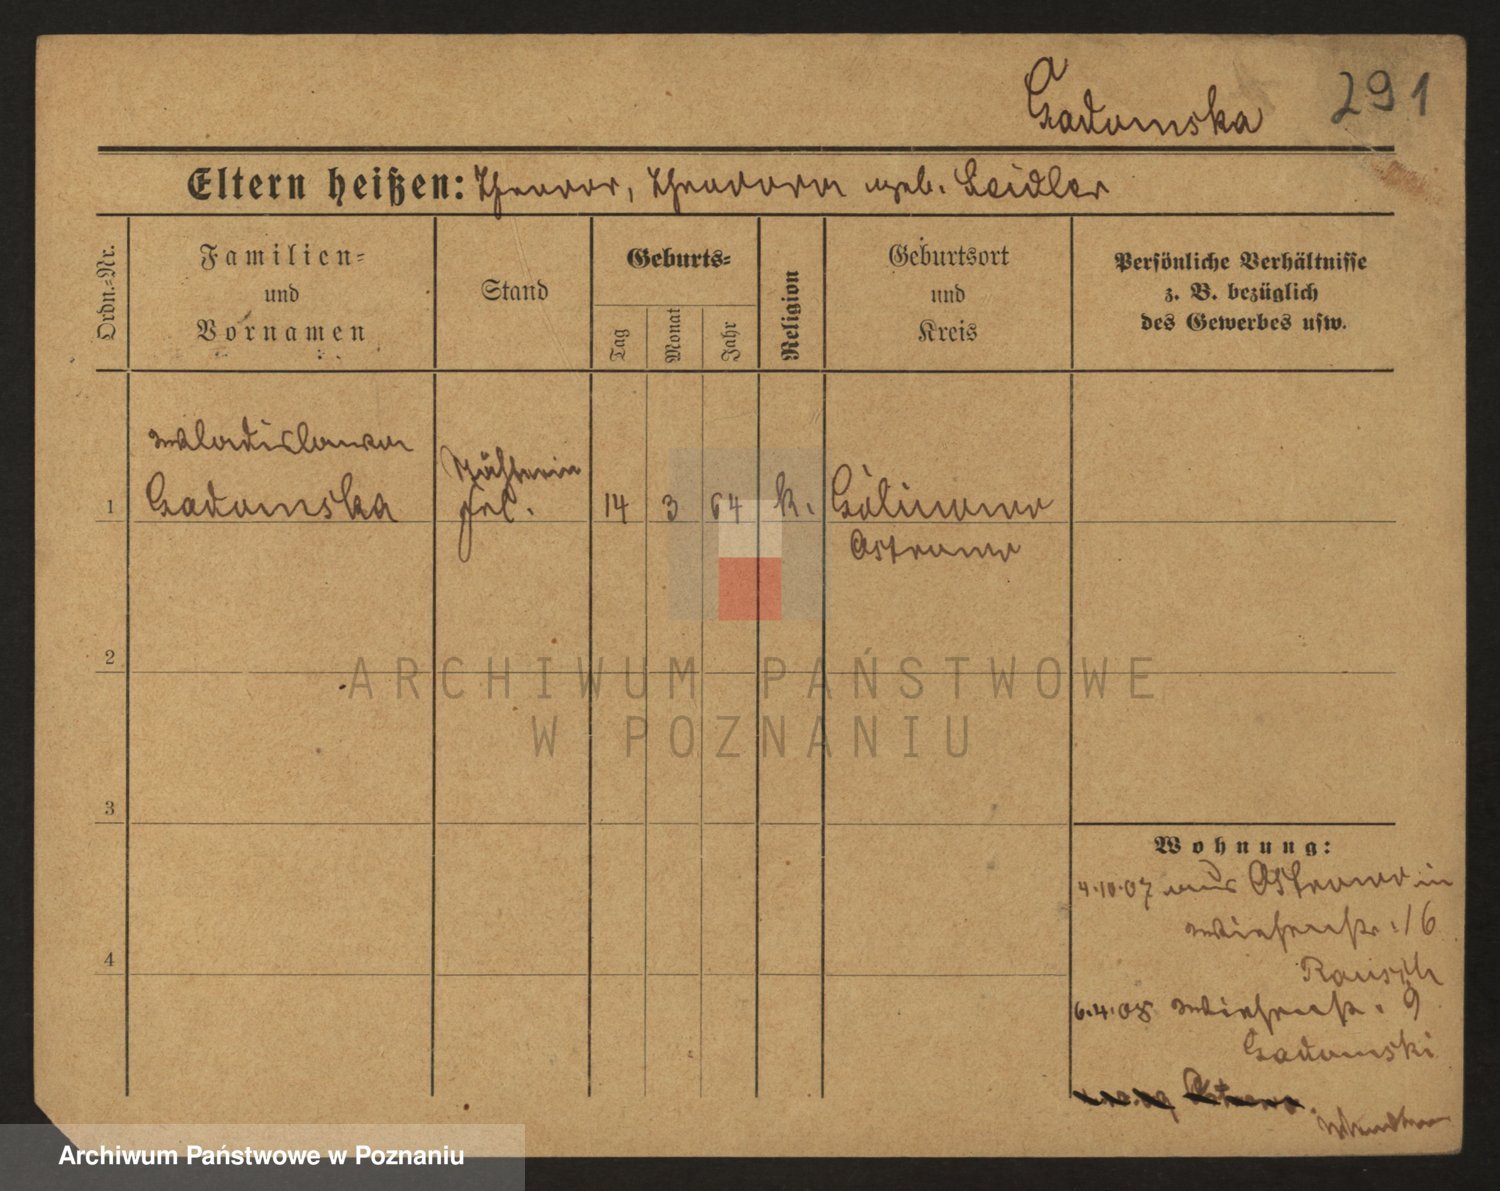 Gadomska 291
Eltern heißen: Theodor, Theodora geb. Seidler
Ordn.-Nr.
Familien-
und
Vornamen
Stand
Geburts-
Tag
Monat
Jahr
Religion
Geburtsort
und
Kreis
Persönliche Verhältnisse
z. B. bezüglich
des Gewerbes usw.
Wladislawa
Nähterin
1 Gadomska
14 3 64 k.
Ostrowo
2
ARCHIWUM PAŃSTWOWE
W POZNANIU
3
Wohnung:
4.10.07 aus Ostrowo in
16
4
Rausch
6.4.08 9
Gadomski
Ostrowo
Archiwum Państwowe w Poznaniu